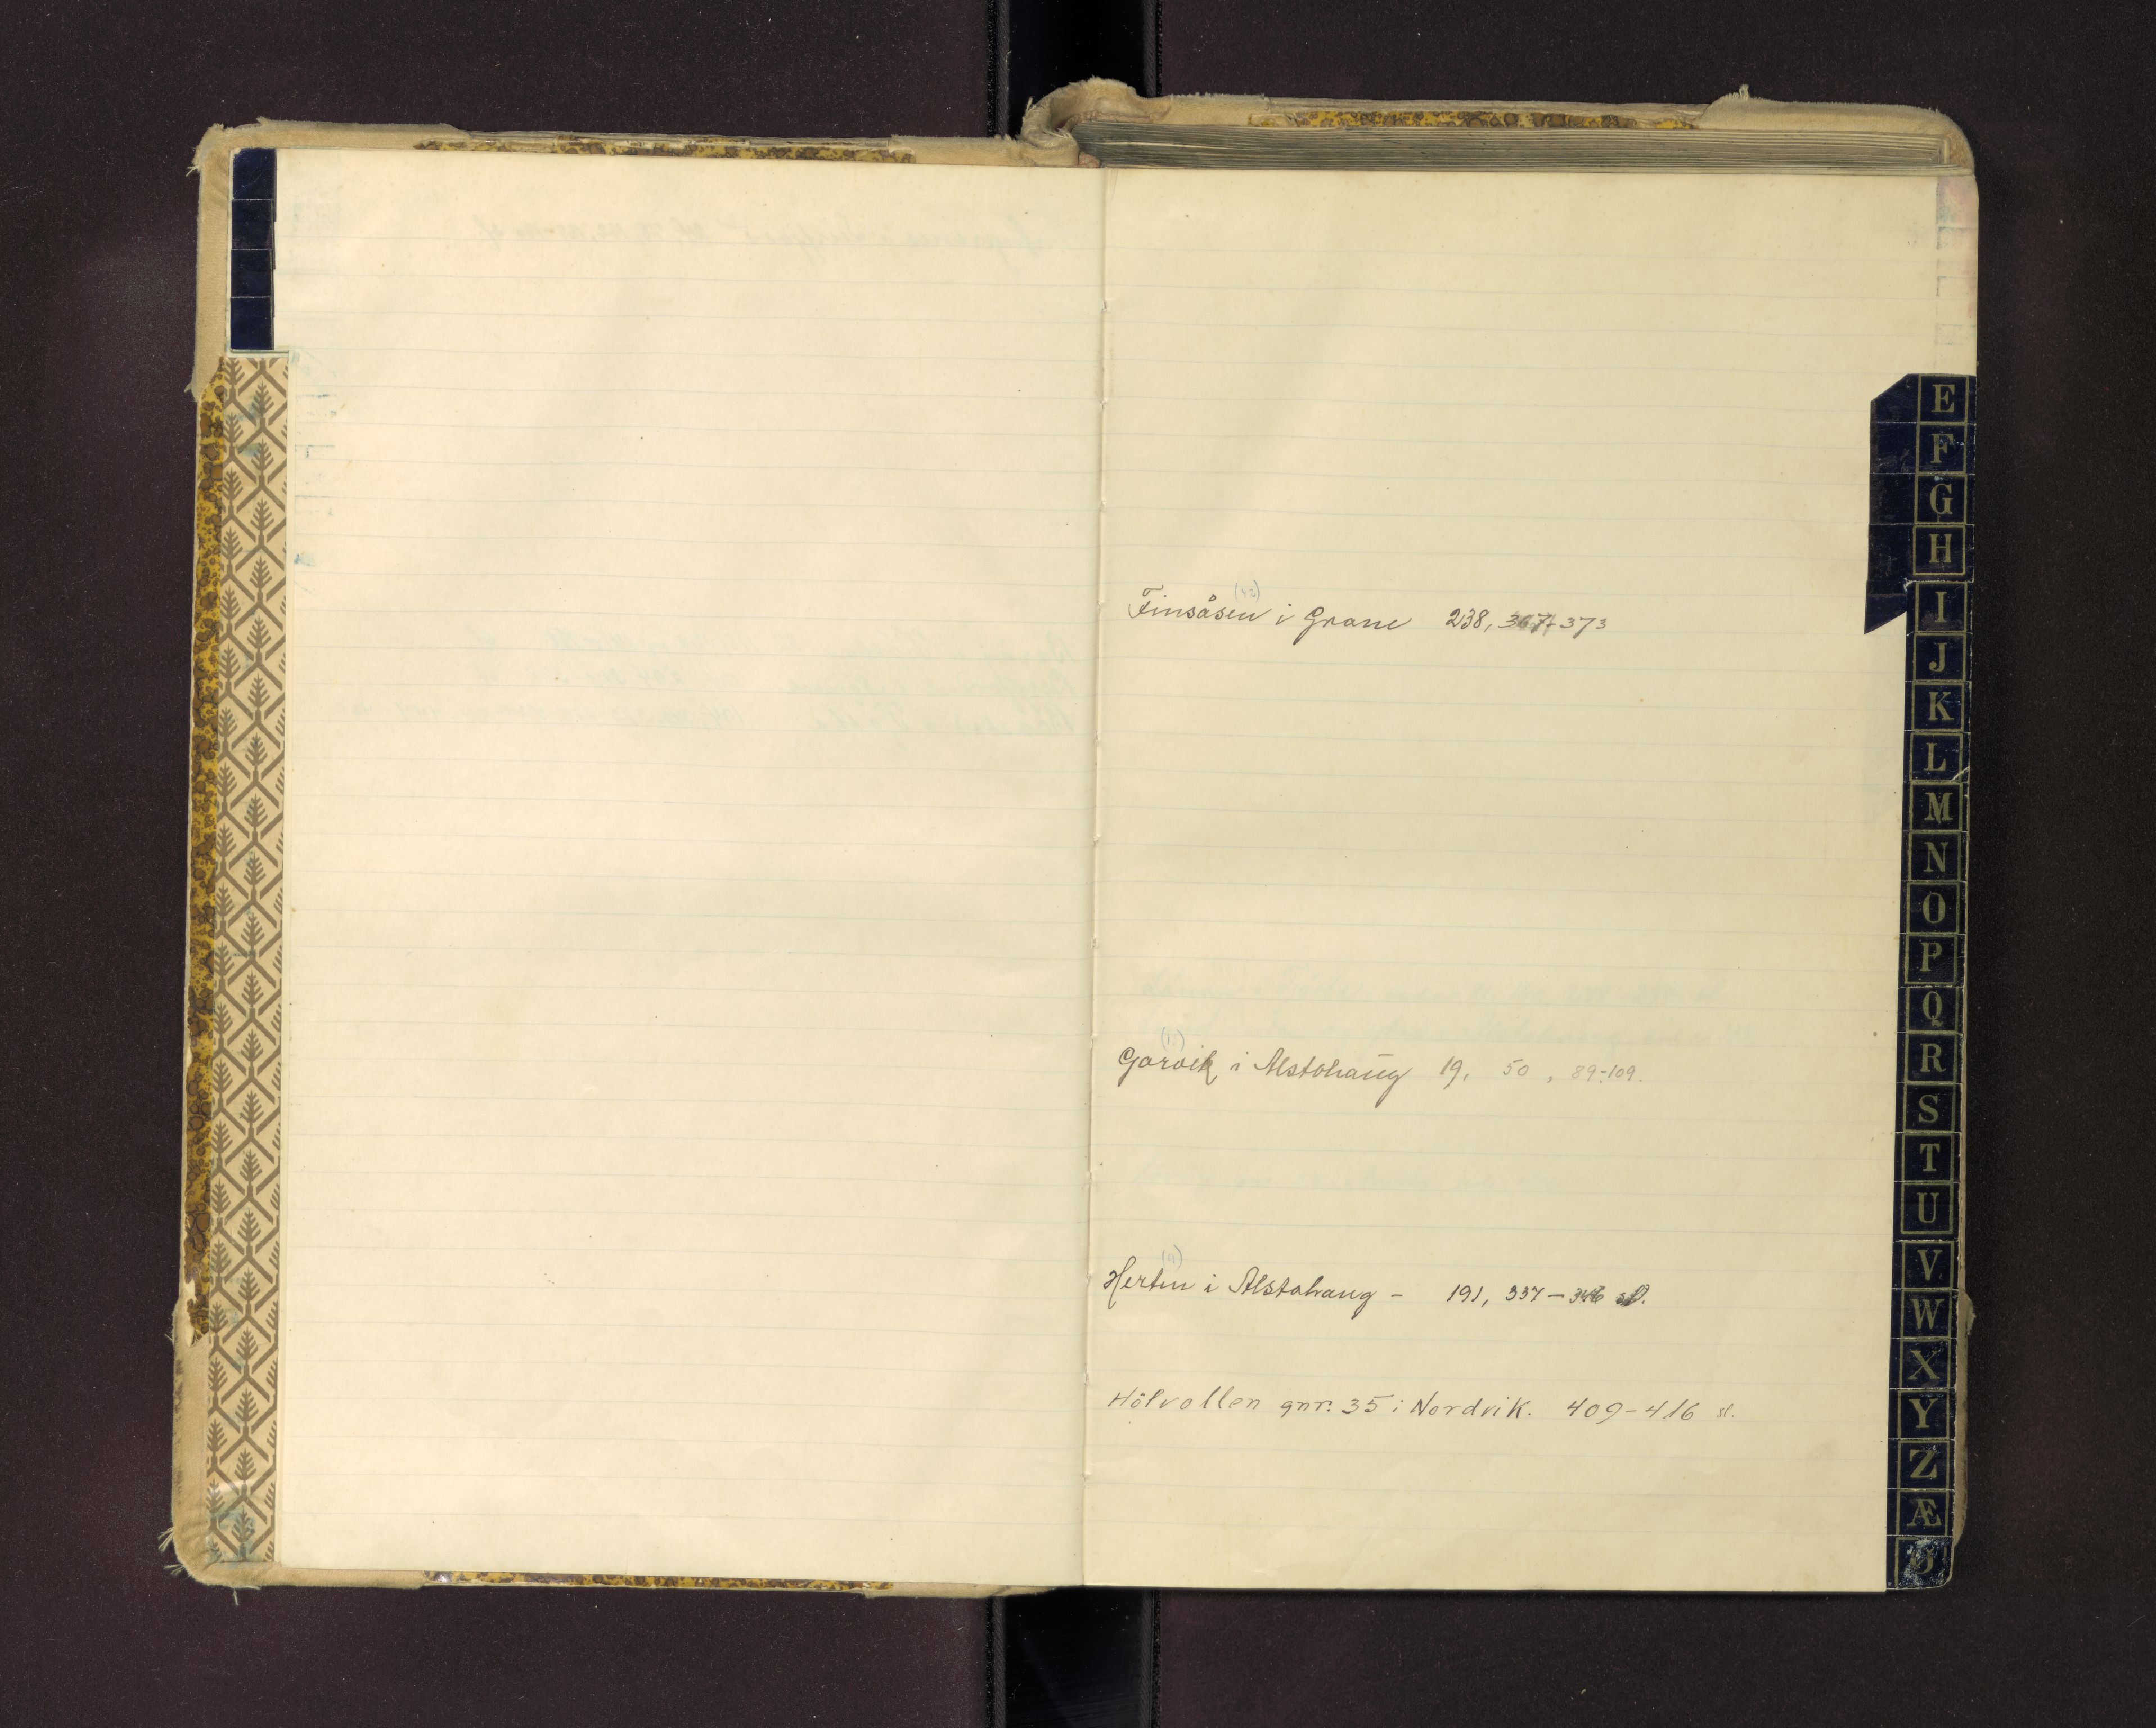 Finsåsen i Grane 238, 367-373
Garvik i Alstahaug 19, 50, 89-109.
Herten i Alstahaug - 191, 337-346 sl.
Hölvollen gnr. 35 i Nordvik. 409-416 sl.
E
F
G
H
I
J
K
L
M
N
O
P
Q
R
S
T
U
V
W
X
Y
Z
Æ
Ø